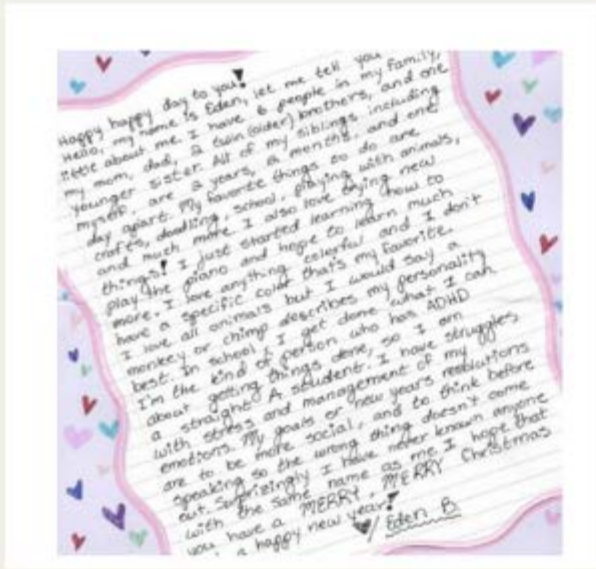 Happy happy day to you!
Hello, my name is Eden, let me tell you
little about me. I have 6 people in my family,
my mom, dad, 2 twin (older) brothers, and one
younger sister. All of my siblings including
myself, are 2 years, 2 months, and one
day apart. My favorite things to do are
crafts, doodling, school, playing with animals,
and much more. I also love trying new
things! I just started learning how to
play the piano and hope to learn much
more. I love anything colorful and I don't
have a specific color that's my favorite.
I love all animals but I would say a
monkey or chimp describes my personality
best. In school I get done what I can.
I'm the kind of person who has ADHD
about getting things done, so I am
a straight A student. I have struggles
with stress and management of my
emotions. My goals or new years resolutions
are to be more social, and to think before
speaking so the wrong thing doesn't come
out. Surprizingly I have never known anyone
with the same name as me. I hope that
you have a MERRY, MERRY Christmas
a happy new year!
Eden B.